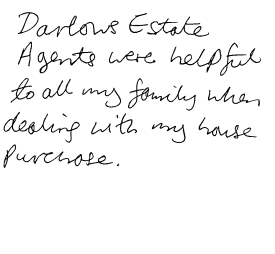 Darlows Estate
Agents were helpful
to all my family when
dealing with my house
purchase.